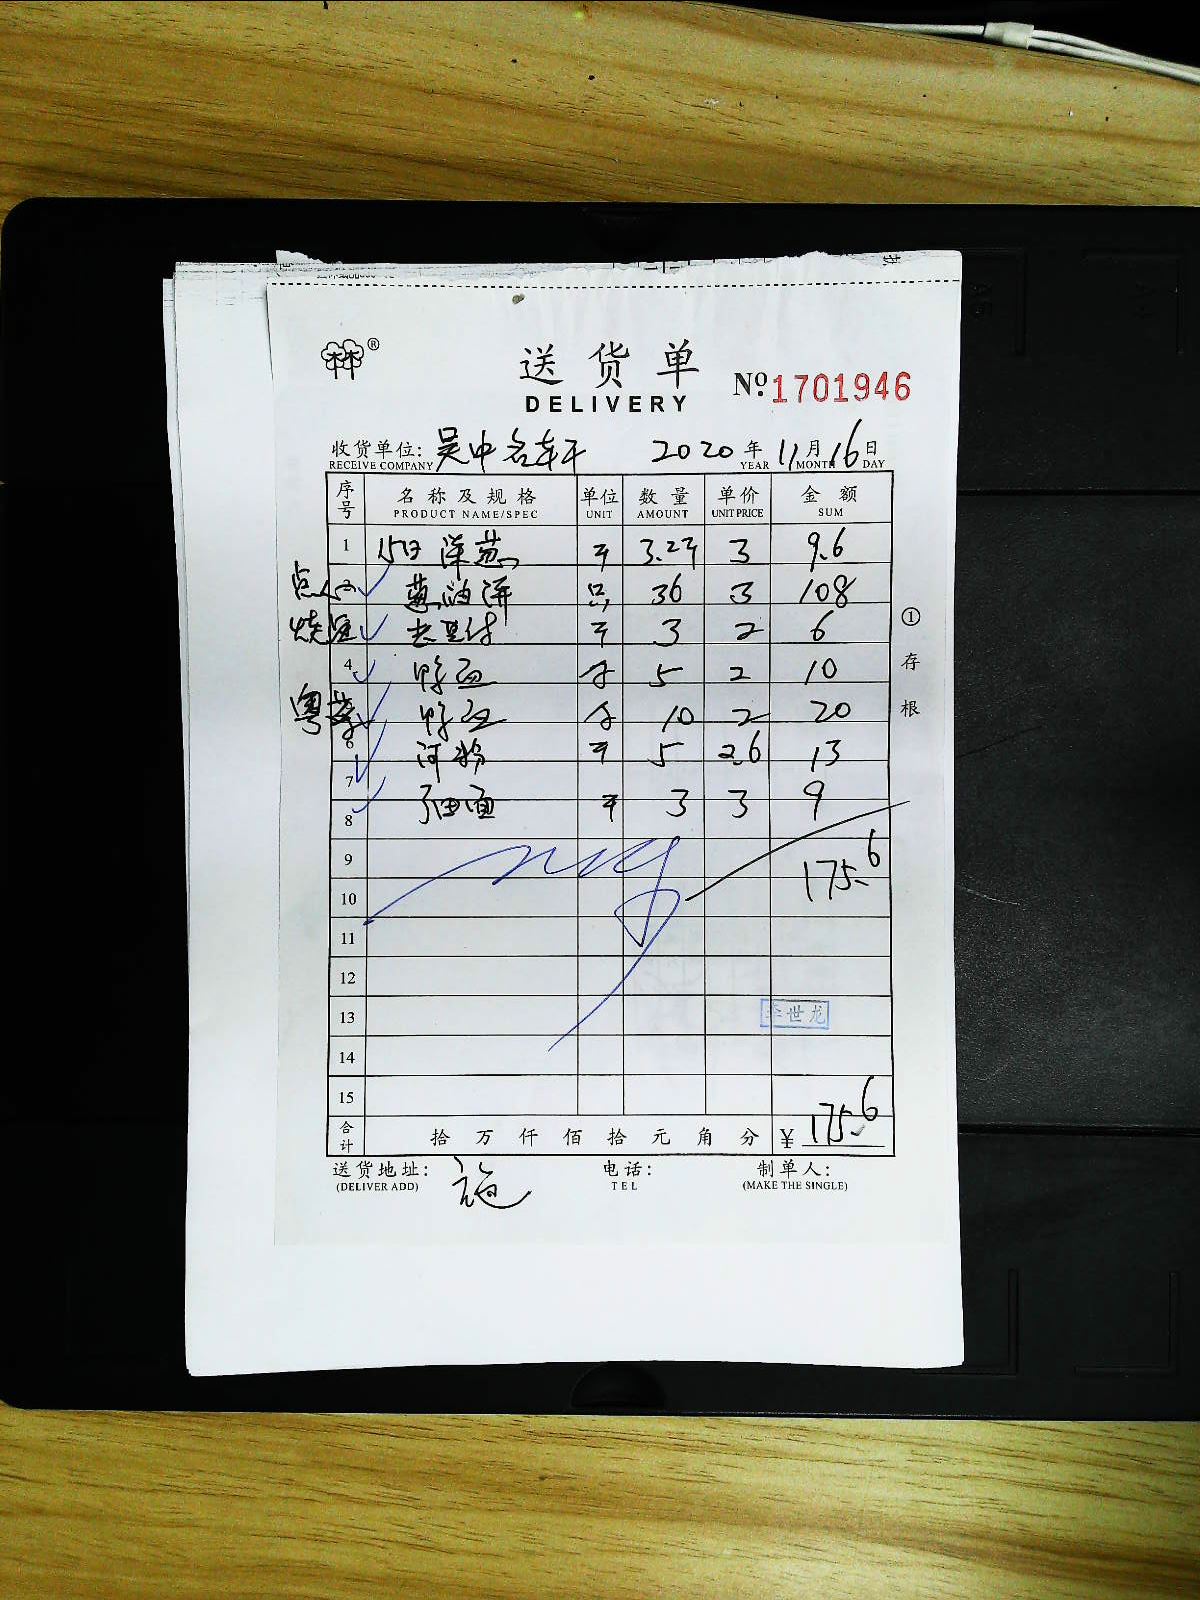 送货单
DELIVERY
№ 1701946
收货单位: 吴中名轩 2020年11月16日
RECEIVE COMPANY YEAR MONTH DAY
序号 名称及规格 单位 数量 单价 金额
PRODUCT NAME/SPEC UNIT AMOUNT UNIT PRICE SUM
1 15日 洋葱 斤 3.2斤 3 9.6
点心 葱油饼 只 36 3 108
烧腊 斤 3 2 6
4 鸭血 5 2 10
粤菜 鸭血 10 2 20
6 河粉 斤 5 2.6 13
7 面 斤 3 3 9
8
9 175.6
10
11
12
13 李世龙
14
15
合计 拾 万 仟 佰 拾 元 角 分 ¥ 175.6
送货地址: 施 电话: 制单人:
(DELIVER ADD) TEL (MAKE THE SINGLE)
①存根